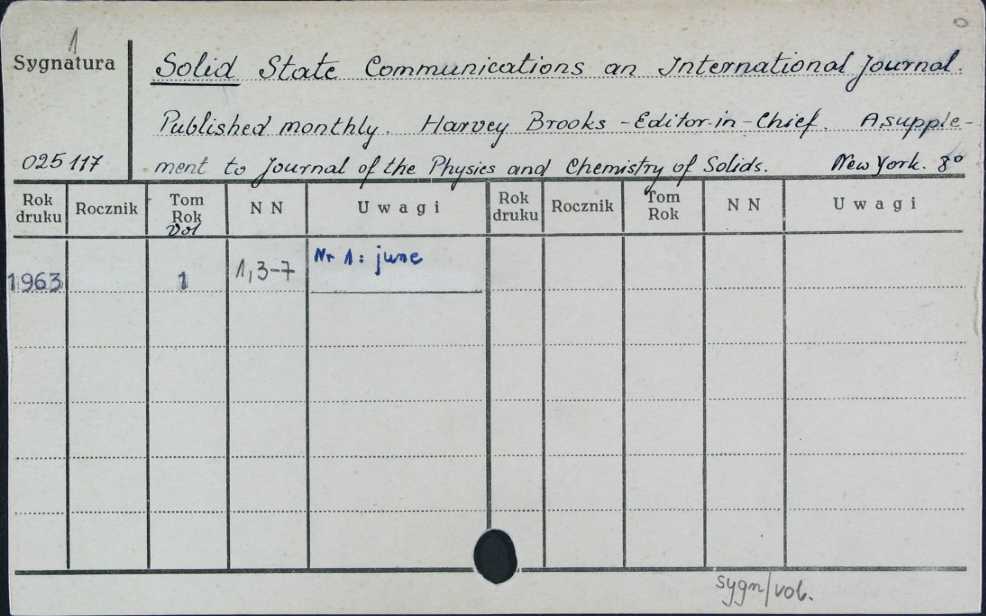 1
0
Sygnatura
Solid State Communications an International Journal.
Published monthly. Harvey Brooks - Editor-in-Chief. A supple-
025117 ment to Journal of the Physics and Chemistry of Solids. New York. 8°
Rok druku Rocznik Tom Rok Vol NN Uwagi Rok druku Rocznik Tom Rok NN Uwagi
1963 1 1,3-7 Nr 1: june
sygn/vol.